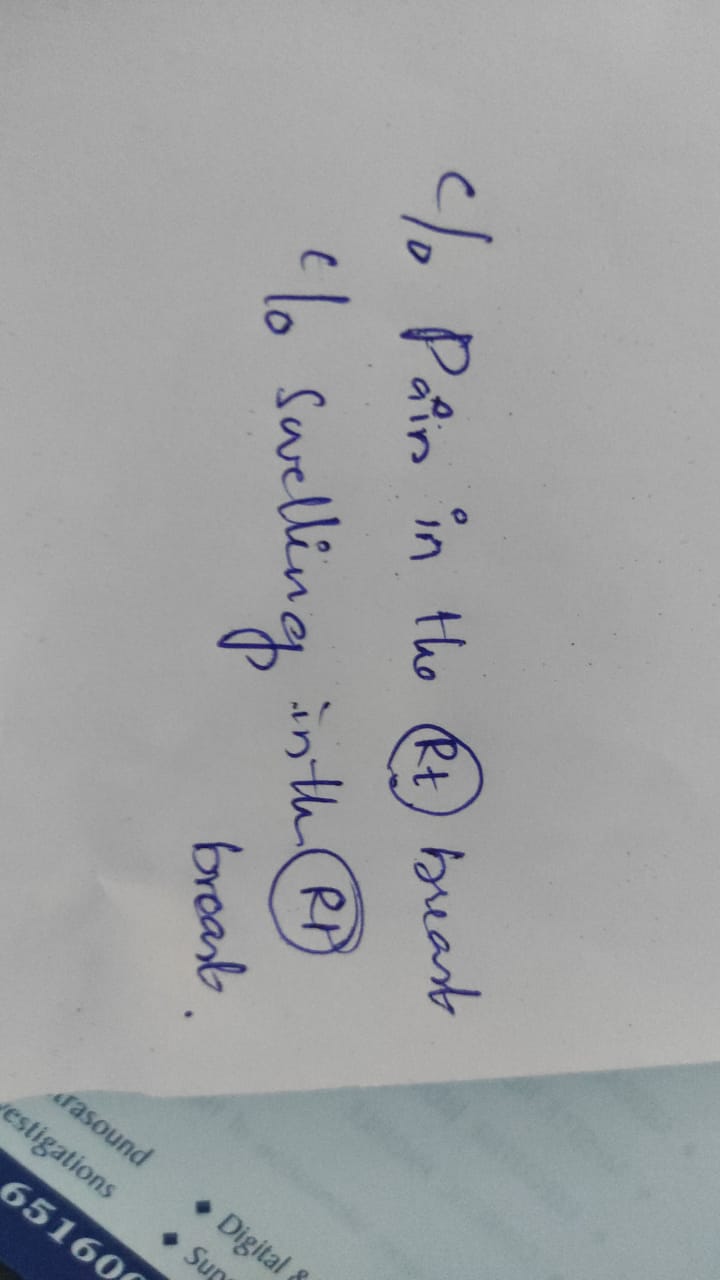 c/o Pain in the Rt breast
c/o Swelling in the Rt
breast.
trasound
estigations
Digital &
65160